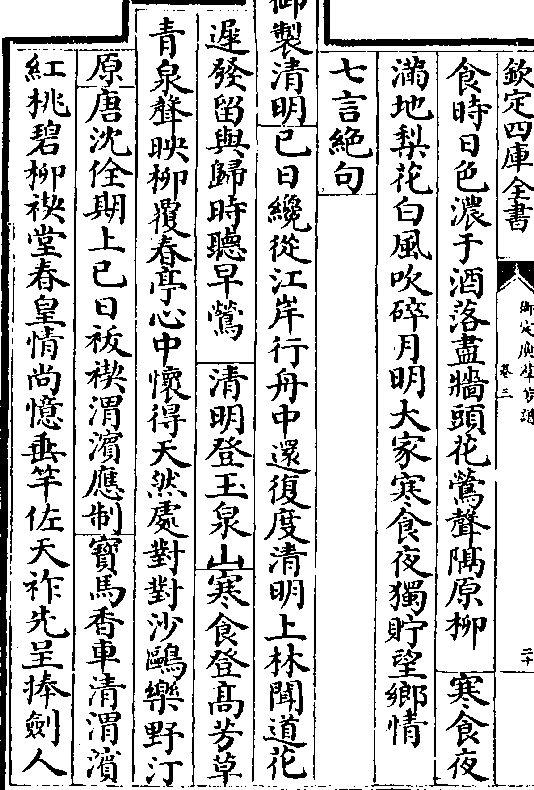 欽定四庫全書
卷三
二十
食時日色濃于酒落盡牆頭花鶯聲隔原柳　寒食夜
滿地梨花白風吹碎月明大家寒食夜獨貯望鄉情
七言絶句
御製清明巳日纔從江岸行舟中還復度清明上林聞道花
遲發留與歸時聽早鶯　清明登玉泉山寒食登髙芳草
青泉聲映柳覆春亭心中懷得天然處對對沙鷗樂野汀
原唐沈佺期上巳日祓禊渭濱應制寶馬香車清渭濱
紅桃碧柳禊堂春皇情尚憶垂竿佐天祚先呈捧劍人